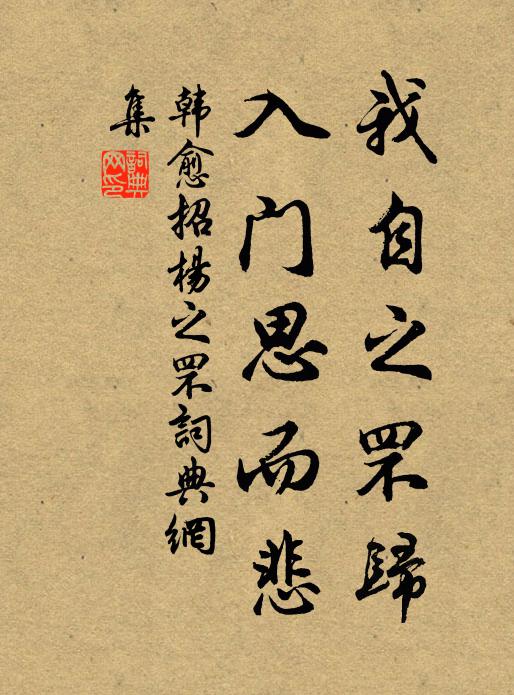 我自之罘歸
入门思而悲
韩愈招楊之罘詞典網
集
詞典网印